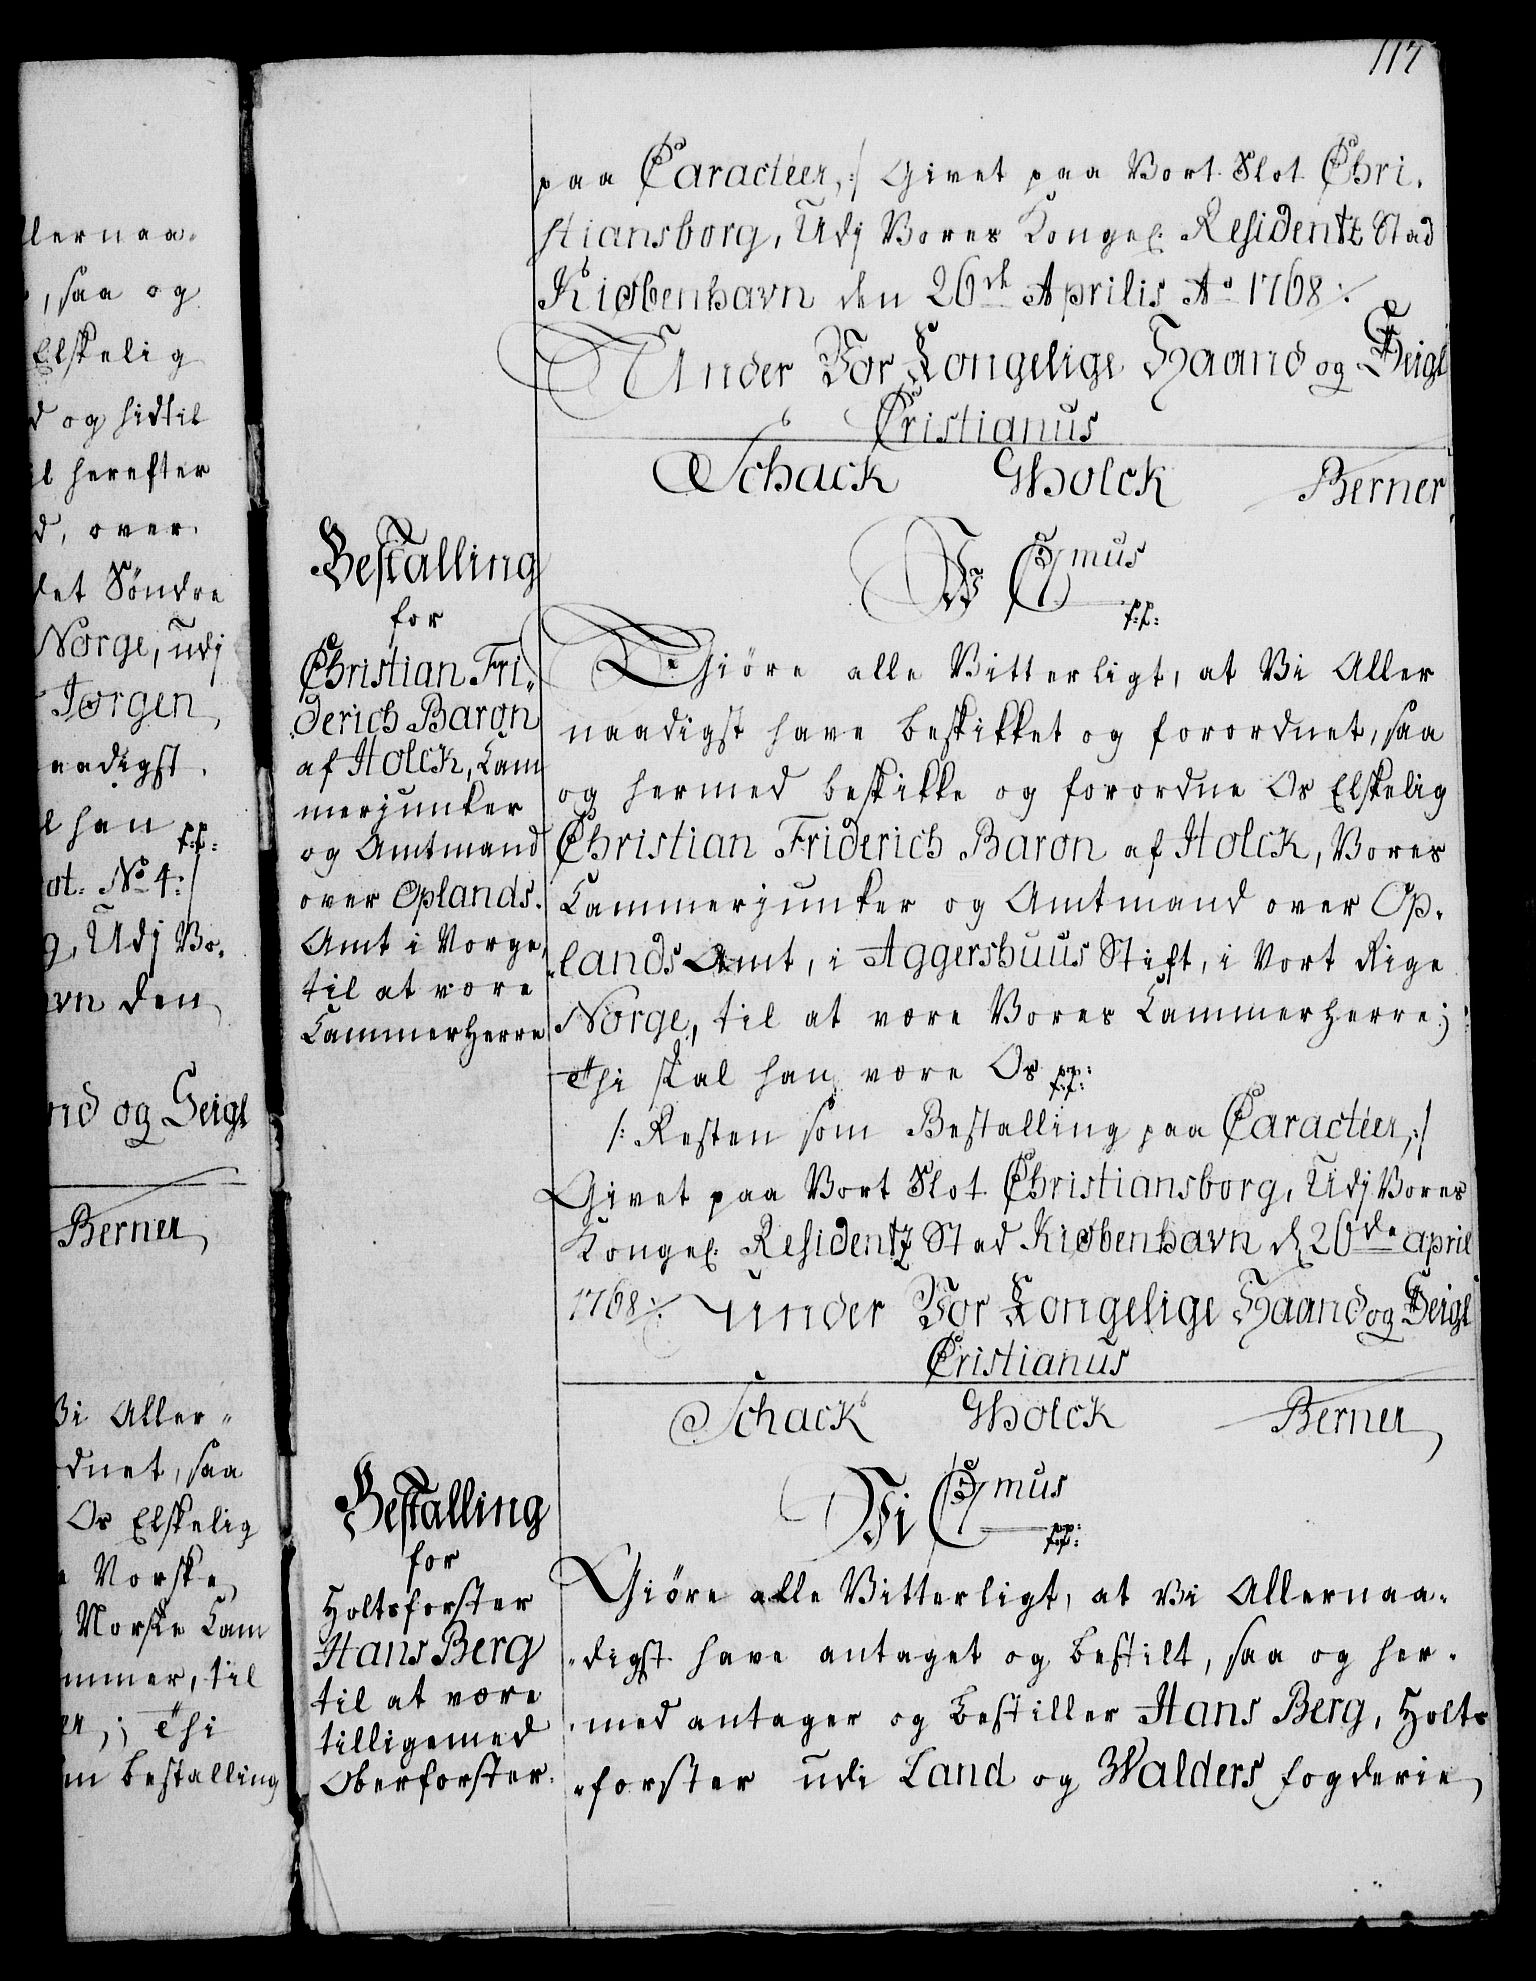 117
paa Caractéer,:/ Givet paa Vort Slot Chri-
stiansborg, Udj Vores Kongel: Residentz Stad
Kiøbenhavn den 26de Aprilis Ao 1768 ∕.
Under Vor Kongelige Haand og Seigl
Cristianus
Schack GHolck Berner
Bestalling
for
Christian Fri-
derich Baron
af Holck, Cam
merjunker
og Amtmand
over Oplands
Amt i Norge,
til at være
CammerHerre
Vi C7mus
p:p:
Giöre alle Vitterligt, at Vi Aller
naadigst have beskikket og forordnet, saa
og hermed beskikke og forordne Os Elskelig
Christian Friderich Baron af Holck, Vores
Cammerjunker og Amtmand over Op-
lands Amt, i Aggershuus Stift, i Vort Rige
Norge, til at være Vores Cammerherre;
Thi skal han være Os pp:
/: Resten som Bestalling paa Caractéer,:/
Givet paa Vort Slot Christiansborg, Udj Vores
Kongel: Residentz Stad Kiøbenhavn d 26de april
1768 ∕. Under Vor Kongelige Haand og Seigl
Cristianus
Schack GHolck Berner
Bestalling
for
Holtsforster
Hans Berg
til at være
tilligemed
Oberforster.
Vi C7mus
pp:
Giöre alle Vitterligt, at Vi Allernaa-
digst have antaget og bestilt, saa og her-
med antager og bestiller Hans Berg, Holts
forster udi Land og Walders fogderie
llernaa-
, saa og
Elskelig
d og hidtil
il herefter
d, over
det Söndre
Norge, udj
Jørgen
aadigst
l han pp:
ot. No 4:/
g, Udj Vo-
avn den
nd og Seigl
Berner
Vi Aller-
dnet, saa
Os Elskelig
Norske
Norske Cam
mmer, til
er,; Thi
m bestalling